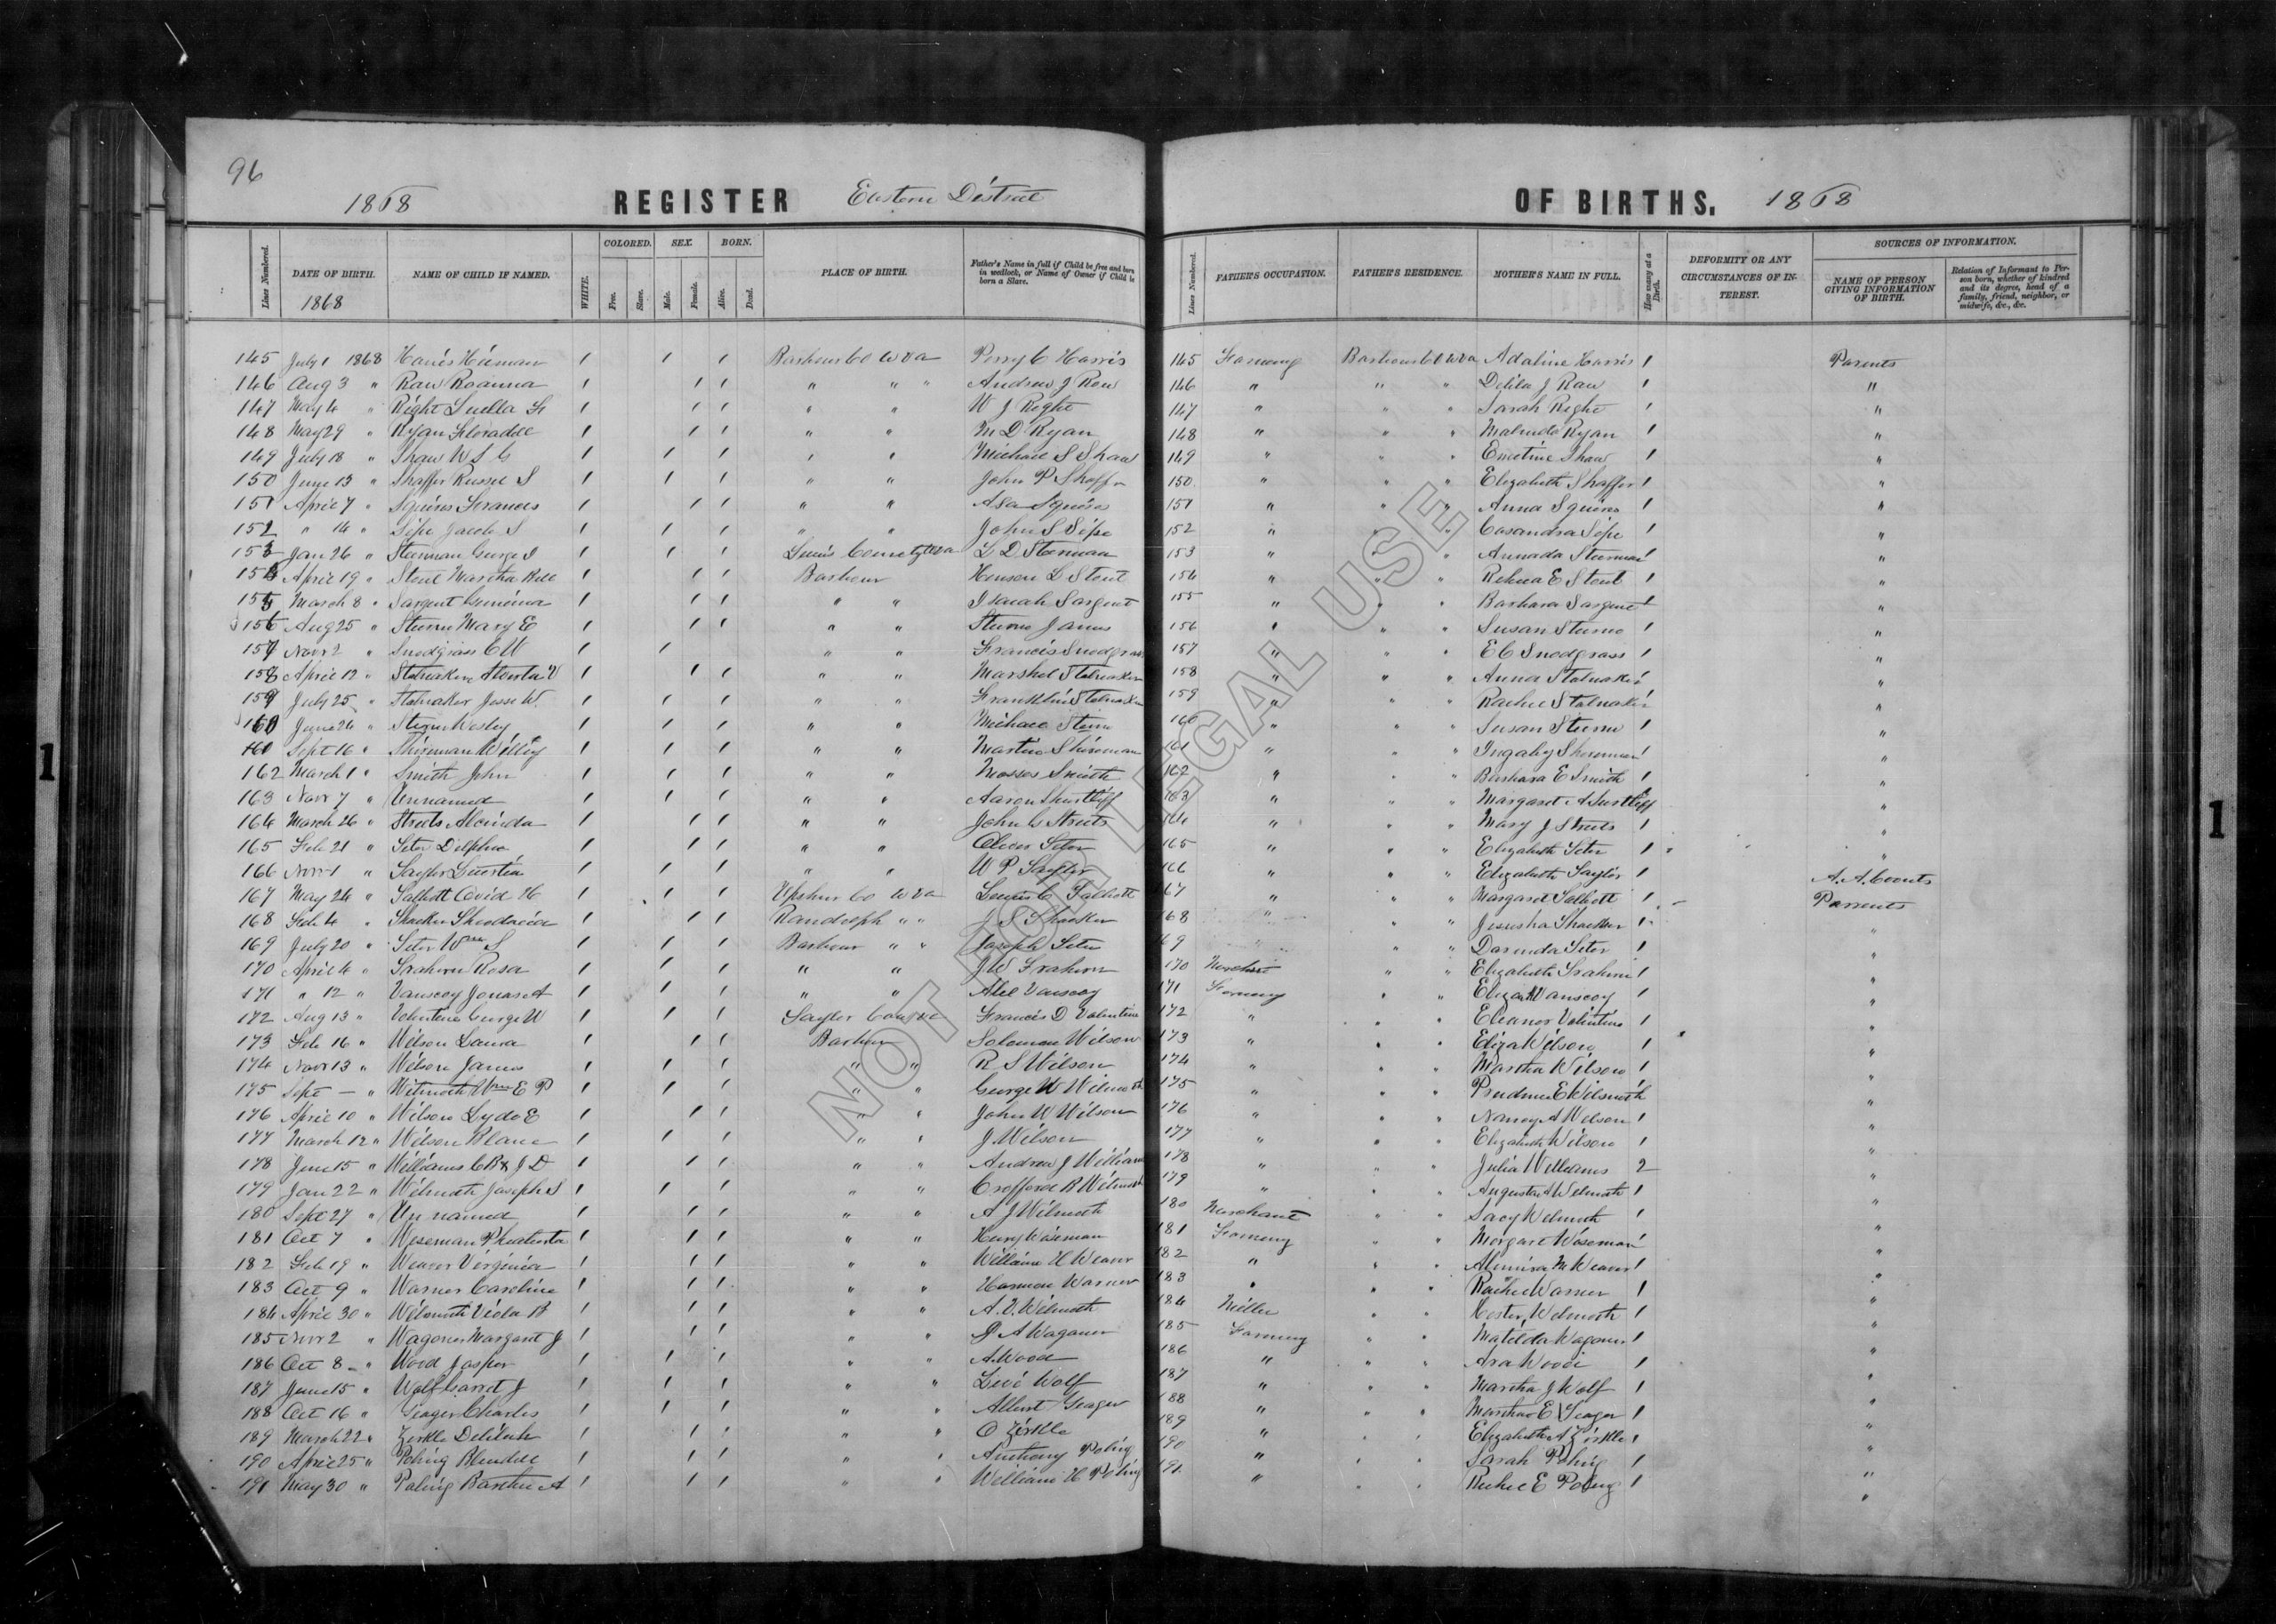 96
1868 REGISTER Eastern District OF BIRTHS. 1868
Lines Numbered. DATE OF BIRTH. 1868 NAME OF CHILD IF NAMED. WHITE. COLORED. Free. Slave. SEX. Male. Female. BORN. Alive. Dead. PLACE OF BIRTH. Father's Name in full if Child be free and born in wedlock, or Name of Owner if Child be born a Slave. Lines Numbered. FATHER'S OCCUPATION. FATHER'S RESIDENCE. MOTHER'S NAME IN FULL. How many at a Birth. DEFORMITY OR ANY CIRCUMSTANCES OF INTEREST. SOURCES OF INFORMATION. NAME OF PERSON GIVING INFORMATION OF BIRTH. Relation of Informant to Person born, whether of kindred and its degree, head of a family, friend, neighbor, or midwife, &c., &c.
145 July 1 1868 Harris 1 1 1 Barbour Co W Va Perry C Harris 145 Farming Barbour Co W Va Adaline Harris 1 Parents
146 Aug 3 " Row Roanna 1 1 1 " " " Andrew J Row 146 " " " Delila J Row 1 "
147 May 4 " Right Luella F 1 1 1 " " W J Right 147 " " " Sarah Right 1 "
148 May 29 " Ryan Floradell 1 1 1 " " M D Ryan 148 " " " Malinda Ryan 1 "
149 July 18 " Shaw W S G 1 1 1 " " Michael S Shaw 149 " " " Emetine Shaw 1 "
150 June 13 " Shaffer Russel S 1 1 1 " " John P Shaffer 150 " " " Elizabeth Shaffer 1 "
151 April 7 " Squires Frances 1 1 1 " " Asa Squires 151 " " " Anna Squires 1 "
152 " 14 " Sipe Jacob S 1 1 1 " " John S Sipe 152 " " " Casandra Sipe 1 "
153 Jan 26 " Sturman George 1 1 1 Lewis County W Va L D Sturman 153 " " " Sturman 1 "
154 April 19 " Stout Martha Bell 1 1 1 Barbour Henson L Stout 154 " " " E Stout 1 "
155 March 8 " Sargent 1 1 1 " " Isaiah Sargent 155 " " " Barbara Sargent 1 "
156 Aug 25 " Sturm Mary E 1 1 1 " " Sturm James 156 " " " Susan Sturm 1 "
157 Novr 2 " Snodgrass C W 1 1 1 " " Francis Snodgrass 157 " " " E C Snodgrass 1 "
158 April 12 " Stalnaker 1 1 1 " " Marshel Stalnaker 158 " " " Anna Stalnaker 1 "
159 July 25 " Stalnaker Jesse W. 1 1 1 " " Franklin Stalnaker 159 " " " Rachel Stalnaker 1 "
160 June 24 " Sturm Wesley 1 1 1 " " Michael Sturm 160 " " " Susan Sturm 1 "
161 Sept 16 " Shireman 1 1 1 " " Martin Shireman 161 " " " Shireman 1 "
162 March 1 " Smith John 1 1 1 " " Mosses Smith 162 " " " Barbara E Smith 1 "
163 Novr 7 " Unnamed 1 1 1 " " Aaron Shurtliff 163 " " " Margaret A 1 "
164 March 26 " Streets Alcinda 1 1 1 " " John G Streets 164 " " " Mary J Streets 1 "
165 Feb 21 " Teter Delphia 1 1 1 " " Oliver Teter 165 " " " Elizabeth Teter 1 "
166 Novr 1 " Taylor 1 1 1 " " W P Taylor 166 " " " Elizabeth Taylor 1 A. A. Coonts
167 May 24 " Talbott Ovid H 1 1 1 Upshur Co W Va Lewis C Talbott 167 " " " Margaret Talbott 1 Parents
168 Feb 4 " 1 1 1 Randolph " " J S 168 " " " 1 "
169 July 20 " Teter Wm S 1 1 1 Barbour " " Joseph Teter 169 " " " Teter 1 "
170 April 4 " Trahern Rosa 1 1 1 " " J W Trahern 170 Merchant " " Elizabeth Trahern 1 "
171 " 12 " Vanscoy Jonas A 1 1 1 " " Abel Vanscoy 171 Farming " " Vanscoy 1 "
172 Aug 13 " Valentine George W 1 1 1 Taylor Co W Va Francis D Valentine 172 " " " Eleanor Valentine 1 "
173 Feb 16 " Wilson Laura 1 1 1 Barbour Solomon Wilson 173 " " " Eliza Wilson 1 "
174 Novr 13 " Wilson James 1 1 1 " " R S Wilson 174 " " " Martha Wilson 1 "
175 Sept — " Wilmoth Wm E P 1 1 1 " " George W Wilmoth 175 " " " E Wilmoth 1 "
176 April 10 " Wilson Lyda E 1 1 1 " " John W Wilson 176 " " " Nancy A Wilson 1 "
177 March 12 " Wilson Blane 1 1 1 " " J Wilson 177 " " " Elizabeth Wilson 1 "
178 June 15 " Williams C B & J D 1 1 1 " " Andrew J Williams 178 " " " Julia Williams 2 "
179 Jan 22 " Wilmoth Joseph S 1 1 1 " " Crofford B Wilmoth 179 " " " Augusta A Wilmoth 1 "
180 Sept 27 " Un named 1 1 1 " " A J Wilmoth 180 Merchant " " Wilmoth 1 "
181 Oct 7 " Wiseman 1 1 1 " " Henry Wiseman 181 Farming " " Margaret Wiseman 1 "
182 Feb 19 " Weaver Virginia 1 1 1 " " William H Weaver 182 " " " Almira M Weaver 1 "
183 Oct 9 " Warner Caroline 1 1 1 " " Harmon Warner 183 " " " Rachel Warner 1 "
184 April 30 " Wilmoth Viola B 1 1 1 " " A. V. Wilmoth 184 Miller " " Hester Wilmoth 1 "
185 Novr 2 " Wagoner Margaret J 1 1 1 " " A Wagoner 185 Farming " " Matilda Wagoner 1 "
186 Oct 8 " Wood Jasper 1 1 1 " " A. Wood 186 " " " Ara Wood 1 "
187 June 15 " Wolf Garret J 1 1 1 " " Levi Wolf 187 " " " Martha J Wolf 1 "
188 Oct 16 " Yeager Charles 1 1 1 " " Albert Yeager 188 " " " Martha E Yeager 1 "
189 March 22 " Zirkle Delilah 1 1 1 " " O Zirkle 189 " " " Elizabeth A Zirkle 1 "
190 April 25 " Poling Blendell 1 1 1 " " Anthony Poling 190 " " " Sarah Poling 1 "
191 May 30 " Poling A 1 1 1 " " William H Poling 191 " " " E Poling 1 "
NOT FOR LEGAL USE
1
1